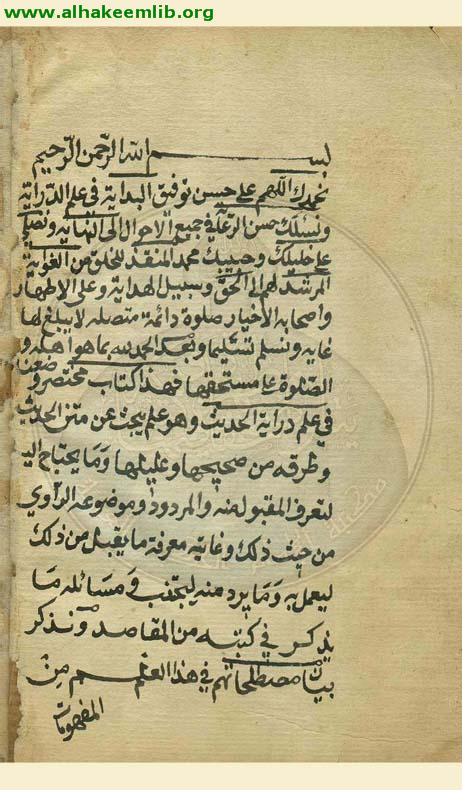 www.alhakeemlib.org
بسم الله الرحمن الرحيم
نحمدك اللهم على حسن توفيق البداية في علم الدراية
ونسئلك حسن الرعاية في جميع الاحوال الى النهاية ونصلي
على خليلك وحبيبك محمد المنقذ للخلق من الغواية
المرشد لهم الى الحق وسبيل الهداية وعلى آله الاطهار
واصحابه الاخيار صلوة دائمة متصله لا يبلغ لها
غاية ونسلم تسليما وبعد الحمد لله بما هو اهله و
الصلوة على مستحقها فهذا كتاب مختصر وضعنا
في علم دراية الحديث وهو علم يبحث عن متن الحديث
وطرقه من صحيحها وعليلها وما يحتاج اليه
لتعرف المقبول منه والمردود وموضوعه الراوي
من حيث ذلك وغايته معرفة ما يقبل من ذلك
ليعمل به وما يرد منه ليجتنب ومسائله ما
يذكر في كتبه من المقاصد ونذكر
بيان مصطلحاتهم في هذا العلم من
المفهومات